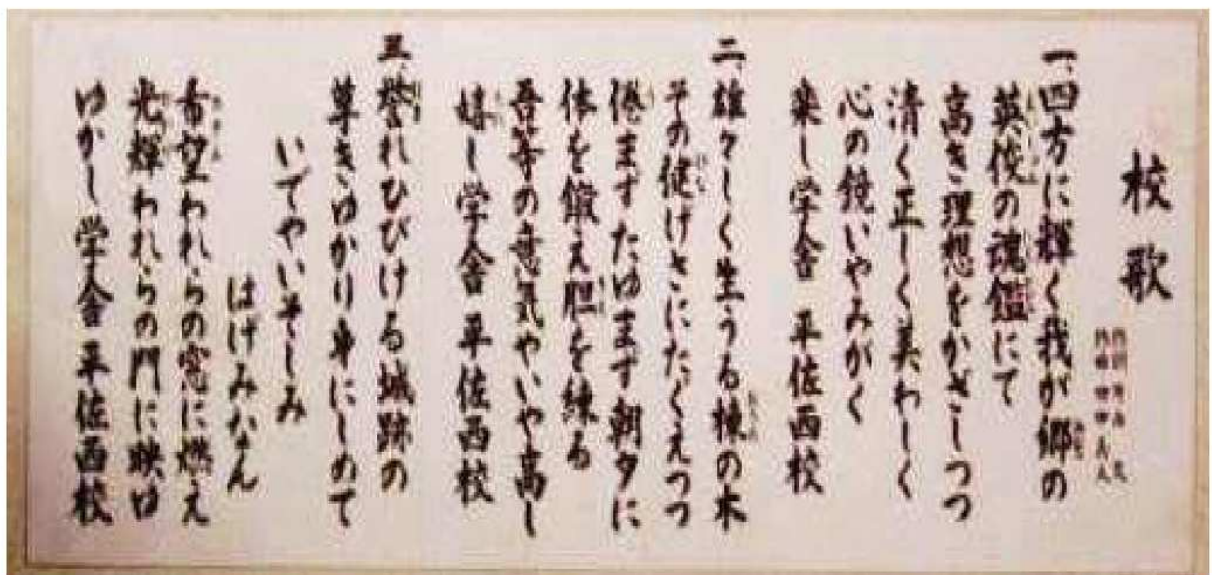 校歌
一、四方に輝く我が郷の
英俊の魂鑑にて
高き理想をかざしつつ
清く正しく美わしく
心の鏡いやみがく
楽し学舎 平佐西校
二、雄々しく生うる楝の木
その健げさにたぐえつつ
倦まずたゆまず朝夕に
体を鍛え胆を練る
吾等の意気やいや高し
嬉し学舎 平佐西校
三、誉れひびける城跡の
草木ゆかり身にしめて
いでやいそしみ
はげみなん
希望われらの窓に燃え
光輝われらの門に映ゆ
ゆかし学舎 平佐西校